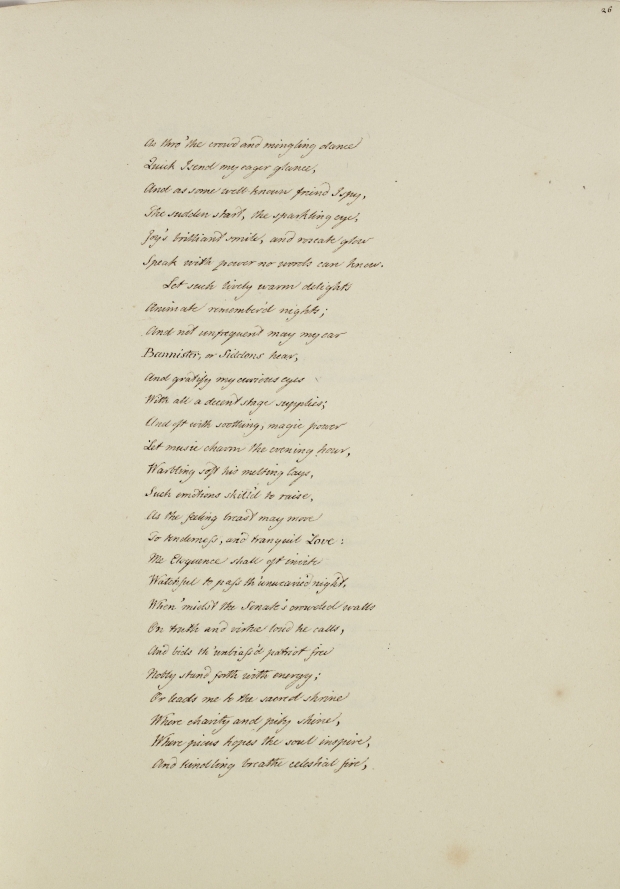 26
As thro' the crowd and mingling dance
Quick I send my eager glance,
And as some well known friend I spy,
The sudden start, the sparkling eye,
Joy's brilliant smile, and roseate glow
Speak with power no words can know.
Let such lively warm delights
Animate remember'd nights;
And not unfrequent may my ear
Bannister, or Siddons hear,
And gratify my curious eyes
With all a decent stage supplies;
And oft with soothing, magic power
Let music charm the evening hour,
Warbling soft his melting lays,
Such emotions skill'd to raise,
As the feeling breast may move
To tenderness, and tranquil Love:
Me Eloquence shall oft invite
Watchful to pass th' unwearied night,
When 'midst the Senate's crowded walls
On truth and virtue loud he calls,
And bids th' unbiass'd patriot free
Nobly stand forth with energy;
Or leads me to the sacred shrine
Where charity and pity shine,
Where pious hopes the soul inspire,
And kindling breathe celestial fire,